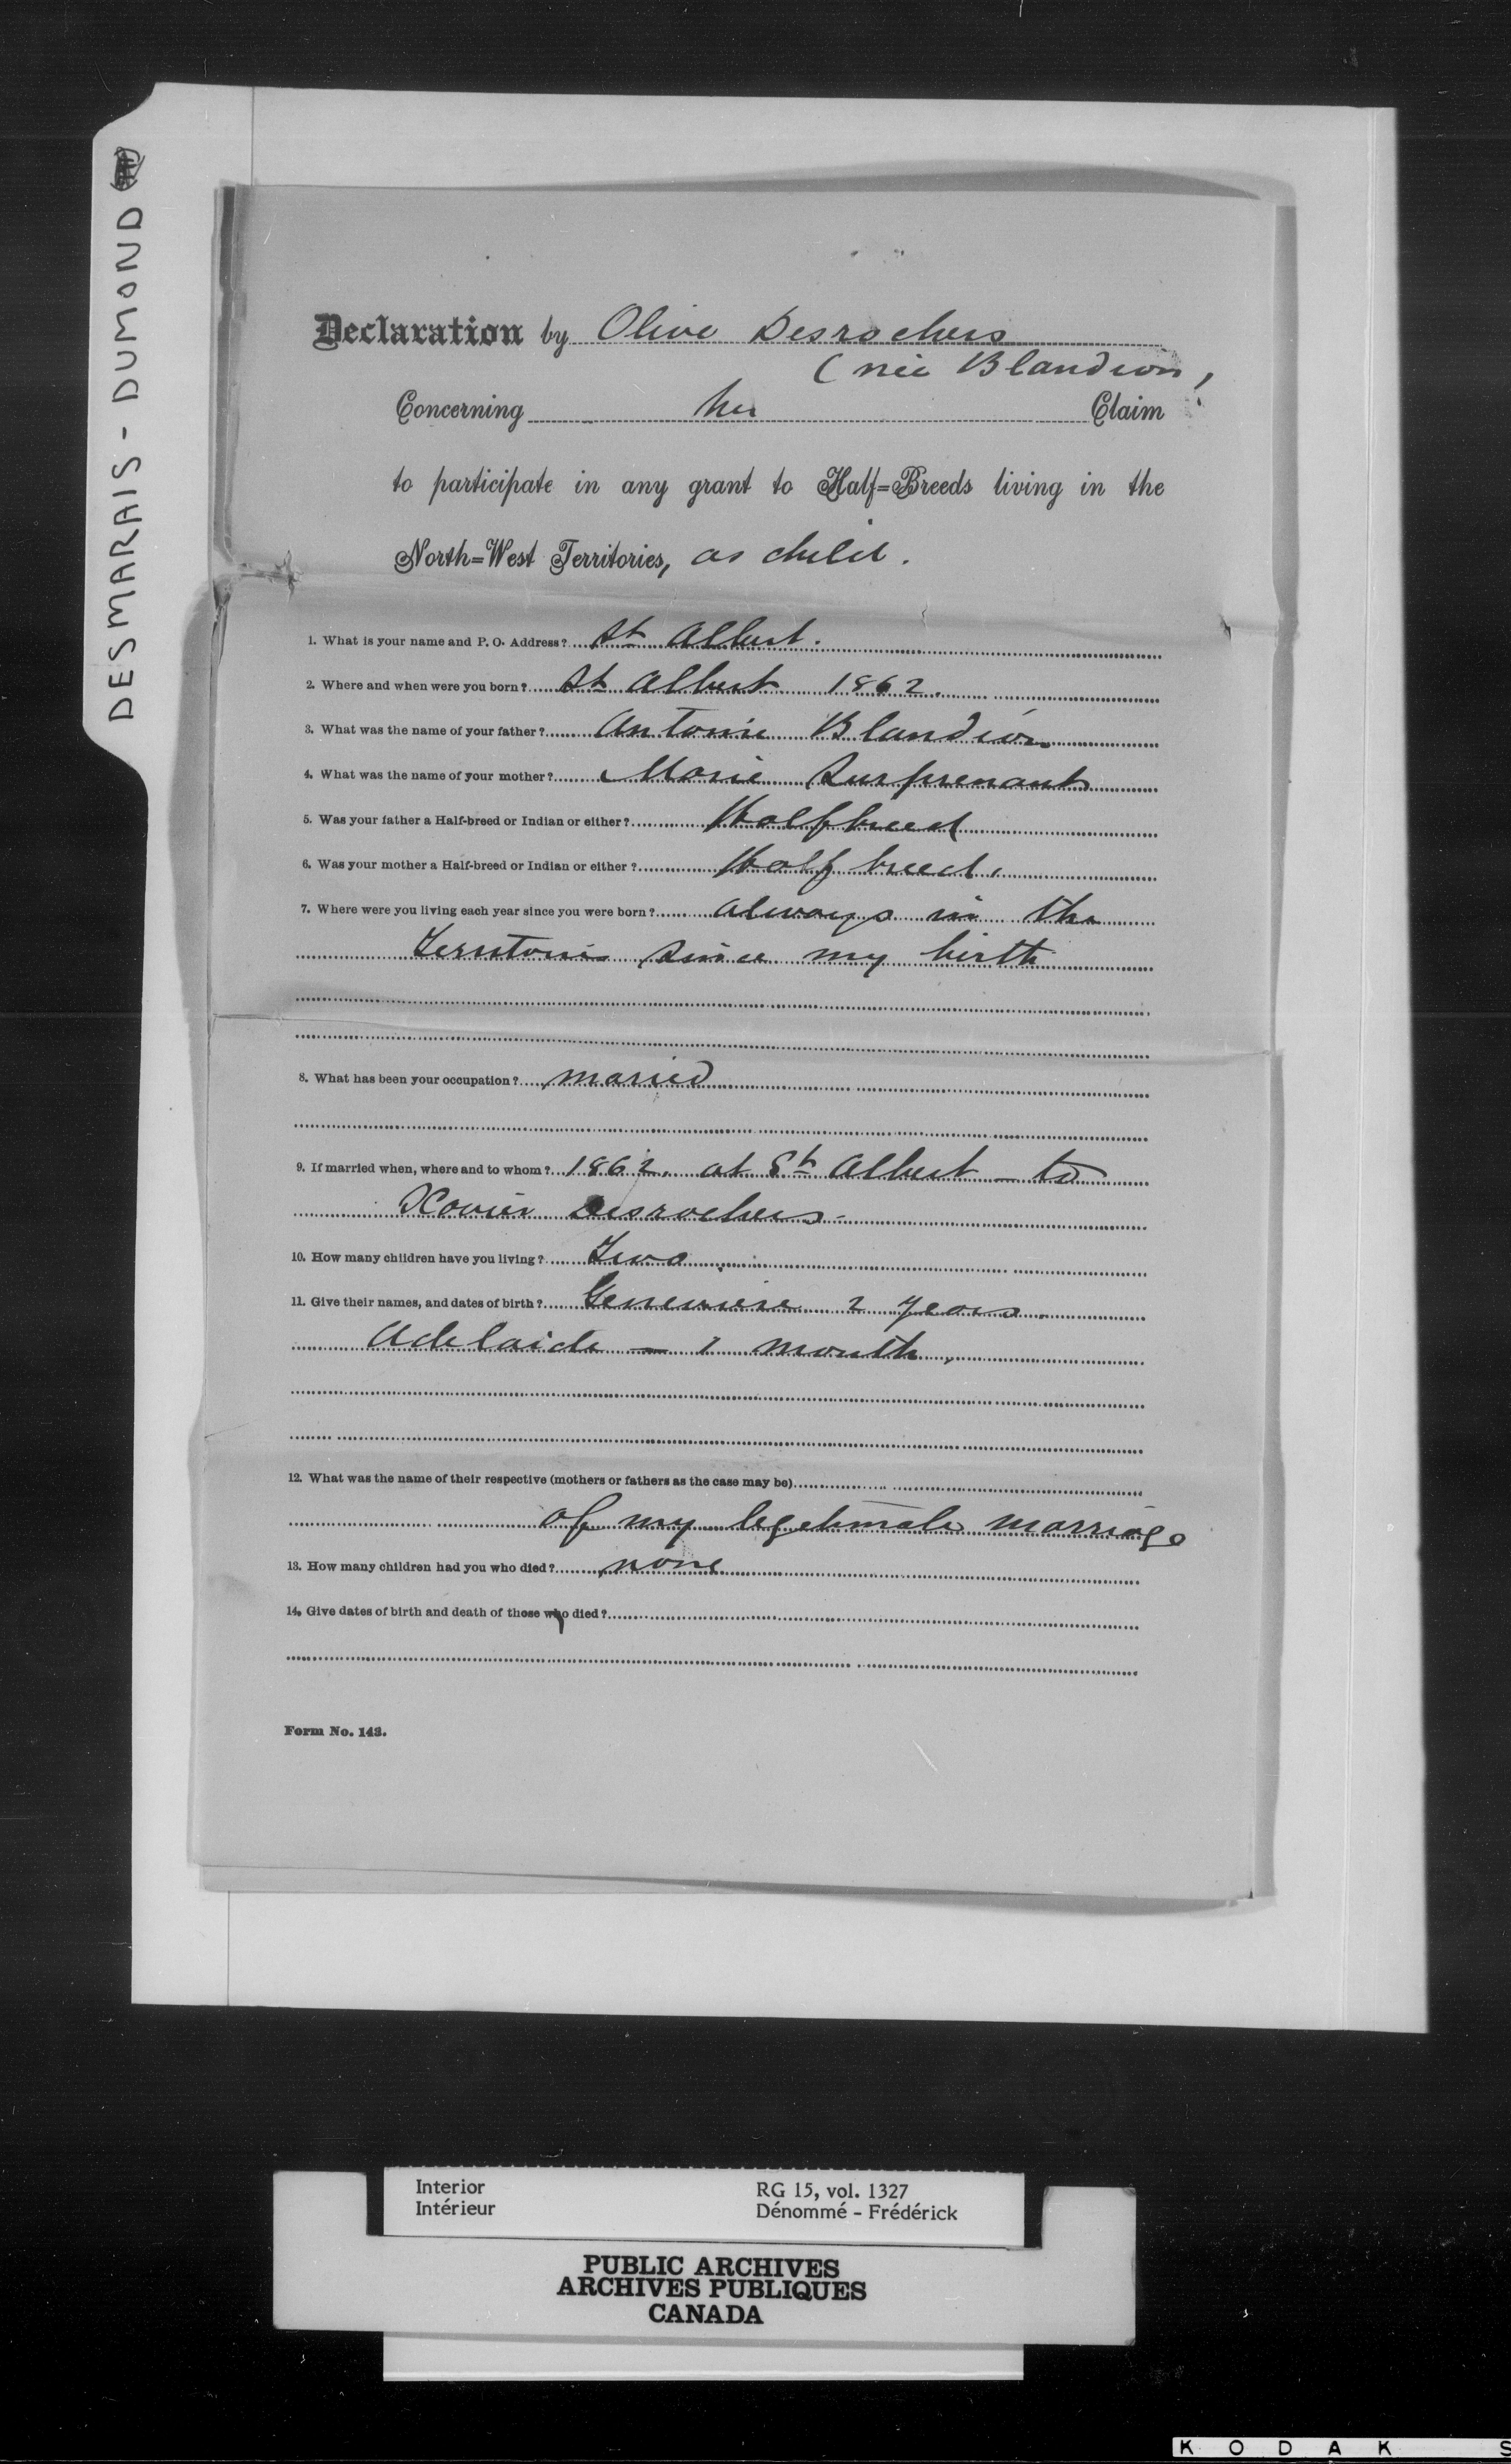 DESMARAIS - DUMOND
Declaration by Olive Desrochers
(née Blandion,
Concerning her Claim
to participate in any grant to Half=Breeds living in the
North=West Territories, as child.
1. What is your name and P. O. Address? St Albert.
2. Where and when were you born? St Albert 1862.
3. What was the name of your father? Antoine Blandion
4. What was the name of your mother? Marie Surprenant
5. Was your father a Half-breed or Indian or either? Halfbreed
6. Was your mother a Half-breed or Indian or either? Half breed.
7. Where were you living each year since you were born? always in the
Territories since my birth
8. What has been your occupation? maried
9. If married when, where and to whom? 1862. at St Albert - to
Xavier Desrochers -
10. How many children have you living? Two
11. Give their names, and dates of birth? Genevieve 2 years.
Adelaide - 1 month.
12. What was the name of their respective (mothers or fathers as the case may be)
of my legetimate marriage
13. How many children had you who died? none
14. Give dates of birth and death of those who died?
Form No. 143.
Interior RG 15, vol. 1327
Intérieur Dénommé - Frédérick
PUBLIC ARCHIVES
ARCHIVES PUBLIQUES
CANADA
K O D A K S